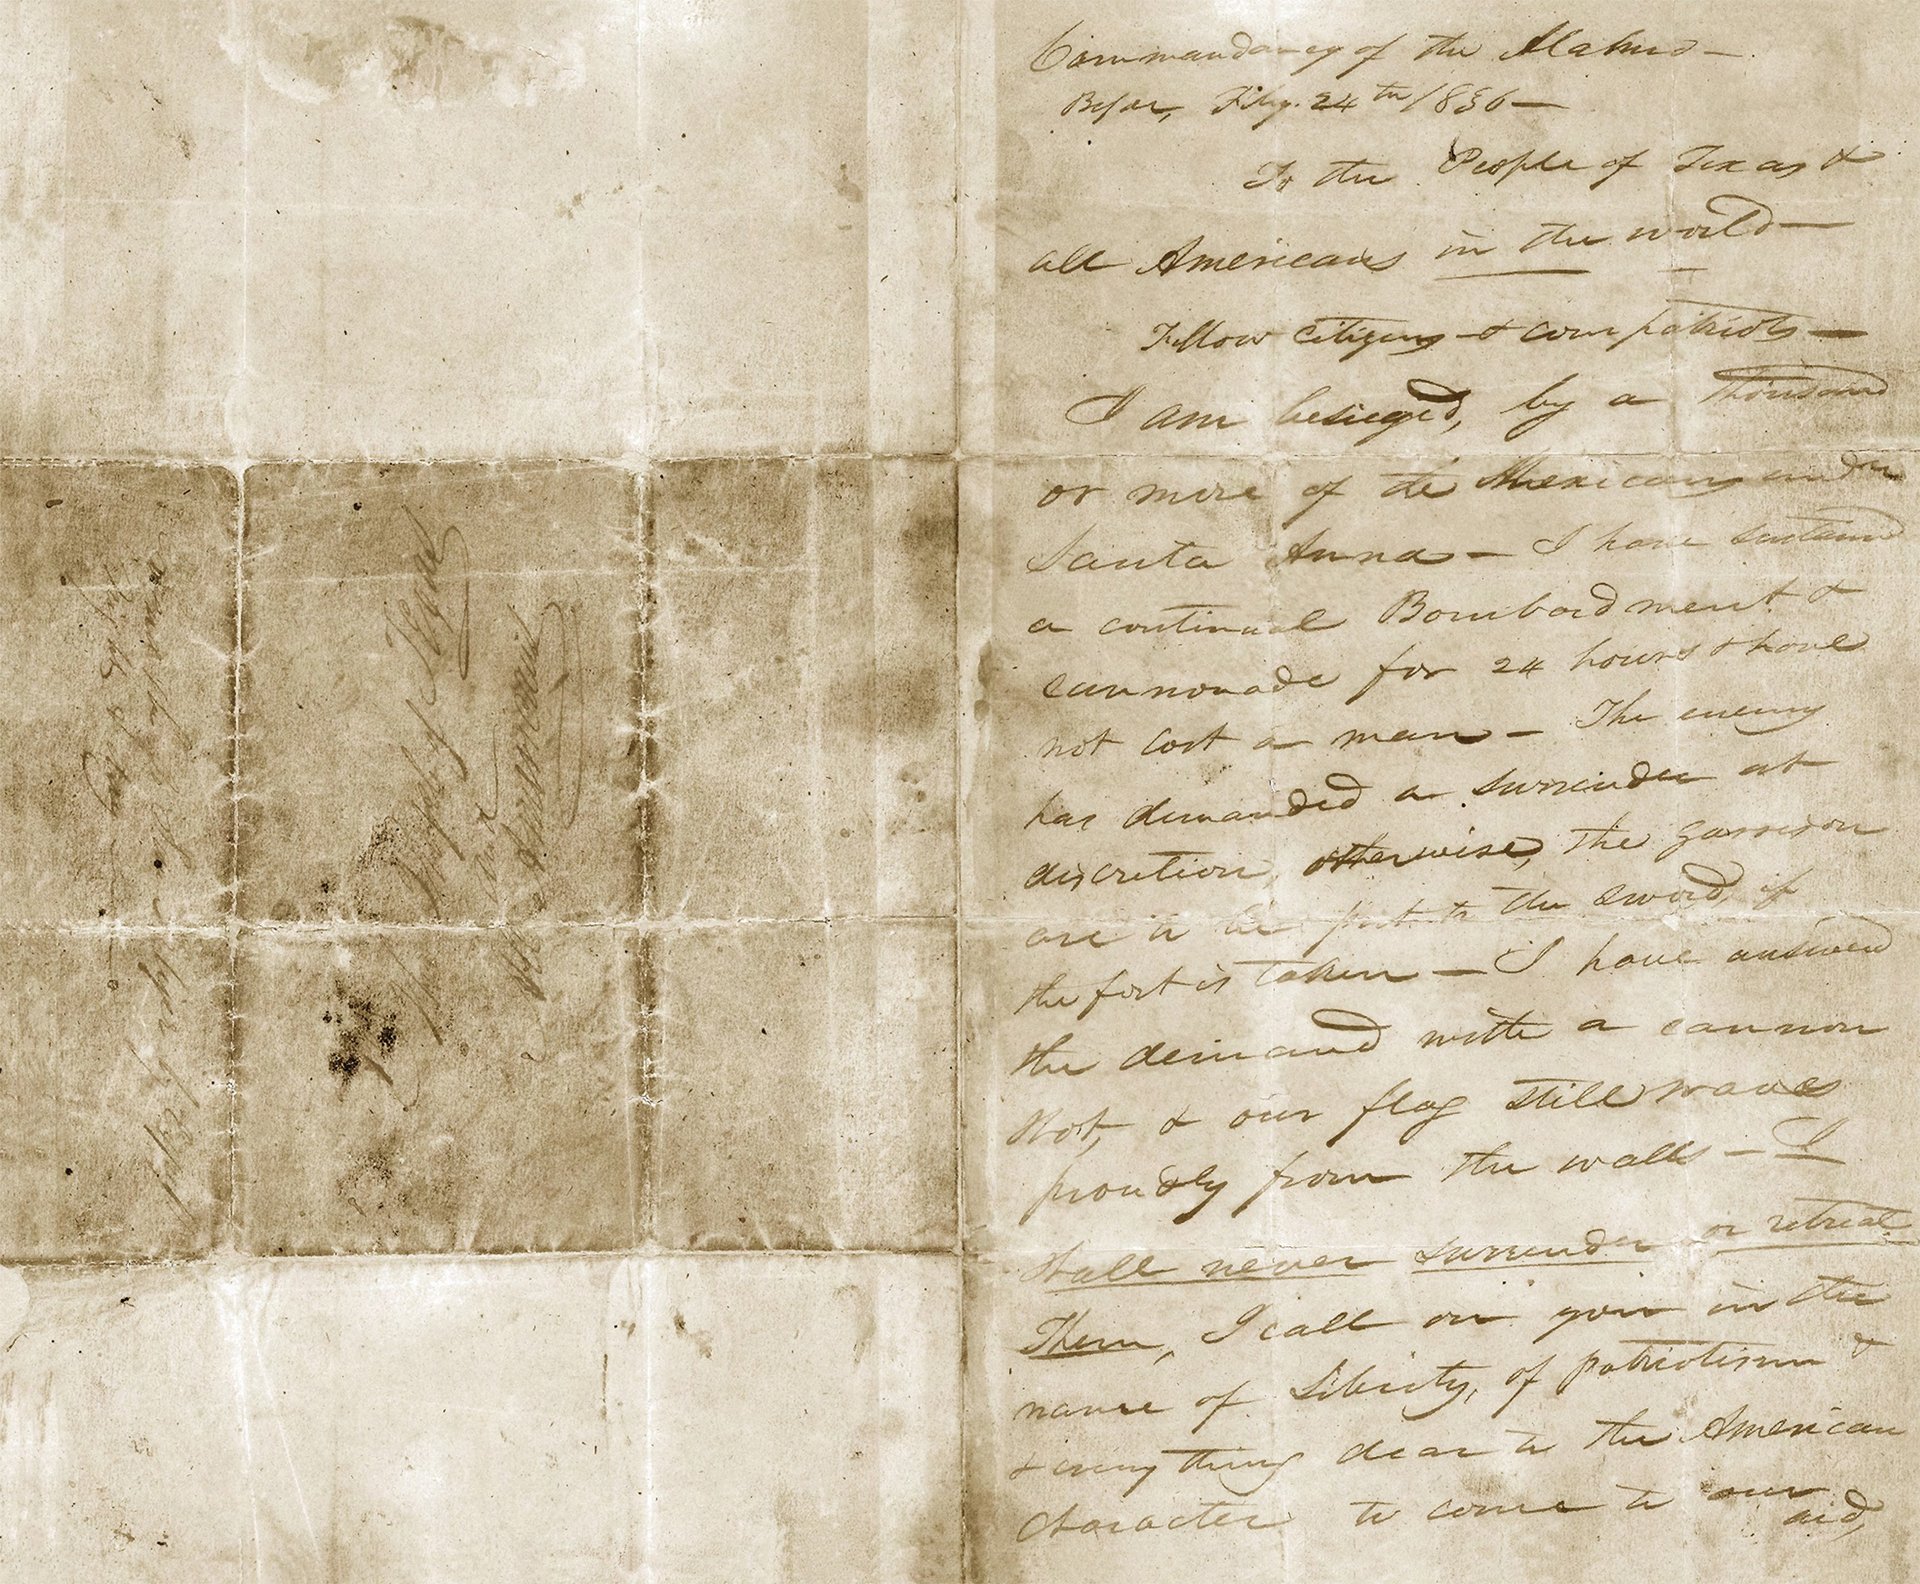 Commandancy of the Alamo—
Bejar, Feby. 24th 1836—
To the People of Texas &
all Americans in the world—
Fellow citizens & compatriots—
I am besieged, by a thousand
or more of the Mexicans under
Santa Anna — I have sustained
a continual Bombardment &
cannonade for 24 hours & have
not lost a man — The enemy
has demanded a surrender at
discretion, otherwise, the garrison
are to be put to the sword, if
the fort is taken — I have answered
the demand with a cannon
shot, & our flag still waves
proudly from the walls — I
shall never surrender or retreat
Then, I call on you in the
name of Liberty, of patriotism &
& every thing dear to the American
character to come to our
aid,